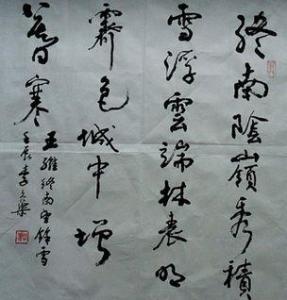 終南陰嶺秀積
雪浮雲端林表明
霽色城中增
暮寒
王維終南望餘雪
壬辰李